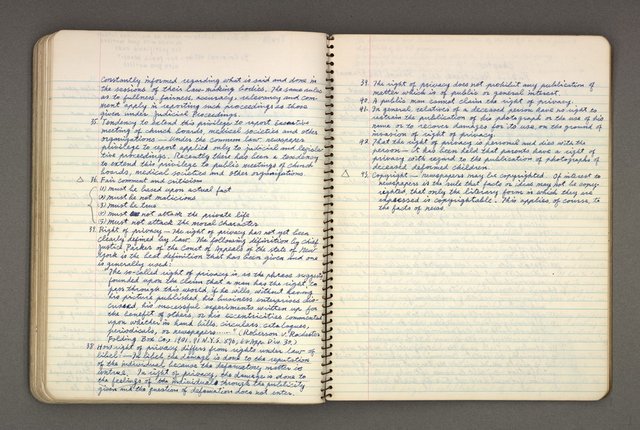 Constantly informed regarding what is said and done in
the sessions of their law-making bodies. The same rules
as to fullness, fairness, accuracy, relevancy and com-
ment apply in reporting such proceedings as those
given under Judicial Proceedings.
35. Tendency to extend this privilege to report executive
meeting of church boards, medical societies and other
organizations — under the common law newspaper
privilege to report applied only to judicial and legisla-
tive proceedings. Recently there has been a tendency
to extend this privilege to public meetings of church
boards, medical societies and other organizations.
△ 36. Fair comment and criticism
(1) must be based upon actual fact
(2) must be not malicious
(3) must be true
(4) must not attack the private life
(5) must not attack the moral character
37. Right of privacy — The right of privacy has not yet been
clearly defined by law. The following definition by Chief
Justice Parker of the Court of Appeals of the state of New
York is the best definition that has been given and one
is generally used:
"The so-called right of privacy is, as the phrase suggests,
founded upon the claim that a man has the right to
pass through this world, if he wills, without having
his picture published, his business enterprises dis-
cussed, his successful experiments written up for
the benefit of others, or his eccentricities commented
upon whether in hand bills, circulars, catalogues,
periodicals, or newspapers......" (Roberson v. Rochester
Folding Box Co., 1901,
38. How right of privacy differs from rights under law of
libel — In libel the damage is done to the reputation
of the individual because the defamatory matter is
untrue. In right of privacy, the damage is done to
the feelings of the individual through the publicity
given and the question of defamation does not enter.
39. The right of privacy does not prohibit any publication of
matter which is of public or general interest.
40. A public man cannot claim the right of privacy.
41. In general, relatives of a deceased person have no right to
restrain the publication of his photograph or the use of his
name or to recover damages for its use, on the ground of
invasion of right of privacy.
42. That the right of privacy is personal and dies with the
person — it has been held that parents have a right of
privacy with regard to the publication of photographs of
deceased deformed children.
△ 43. Copyright — Newspapers may be copyrighted. Of interest to
newspapers is the rule that facts or idea may not be copy-
righted, that only the literary form in which they are
expressed is copyrightable. This applies, of course, to
the facts of news.